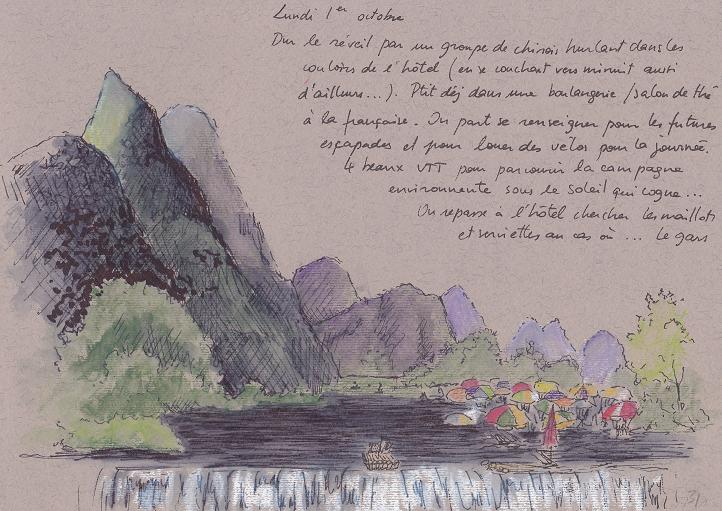 Lundi 1er octobre
Dur le réveil par un groupe de chinois hurlant dans les
couloirs de l'hôtel (en se couchant vers minuit aussi
d'ailleurs...). Ptit déj dans une boulangerie / salon de thé
à la française. On part se renseigner pour les futures
escapades et pour louer des vélos pour la journée.
4 beaux VTT pour parcourir la campagne
environnante sous le soleil qui cogne...
On repasse à l'hôtel chercher les maillots
et serviettes au cas où ... Le gars